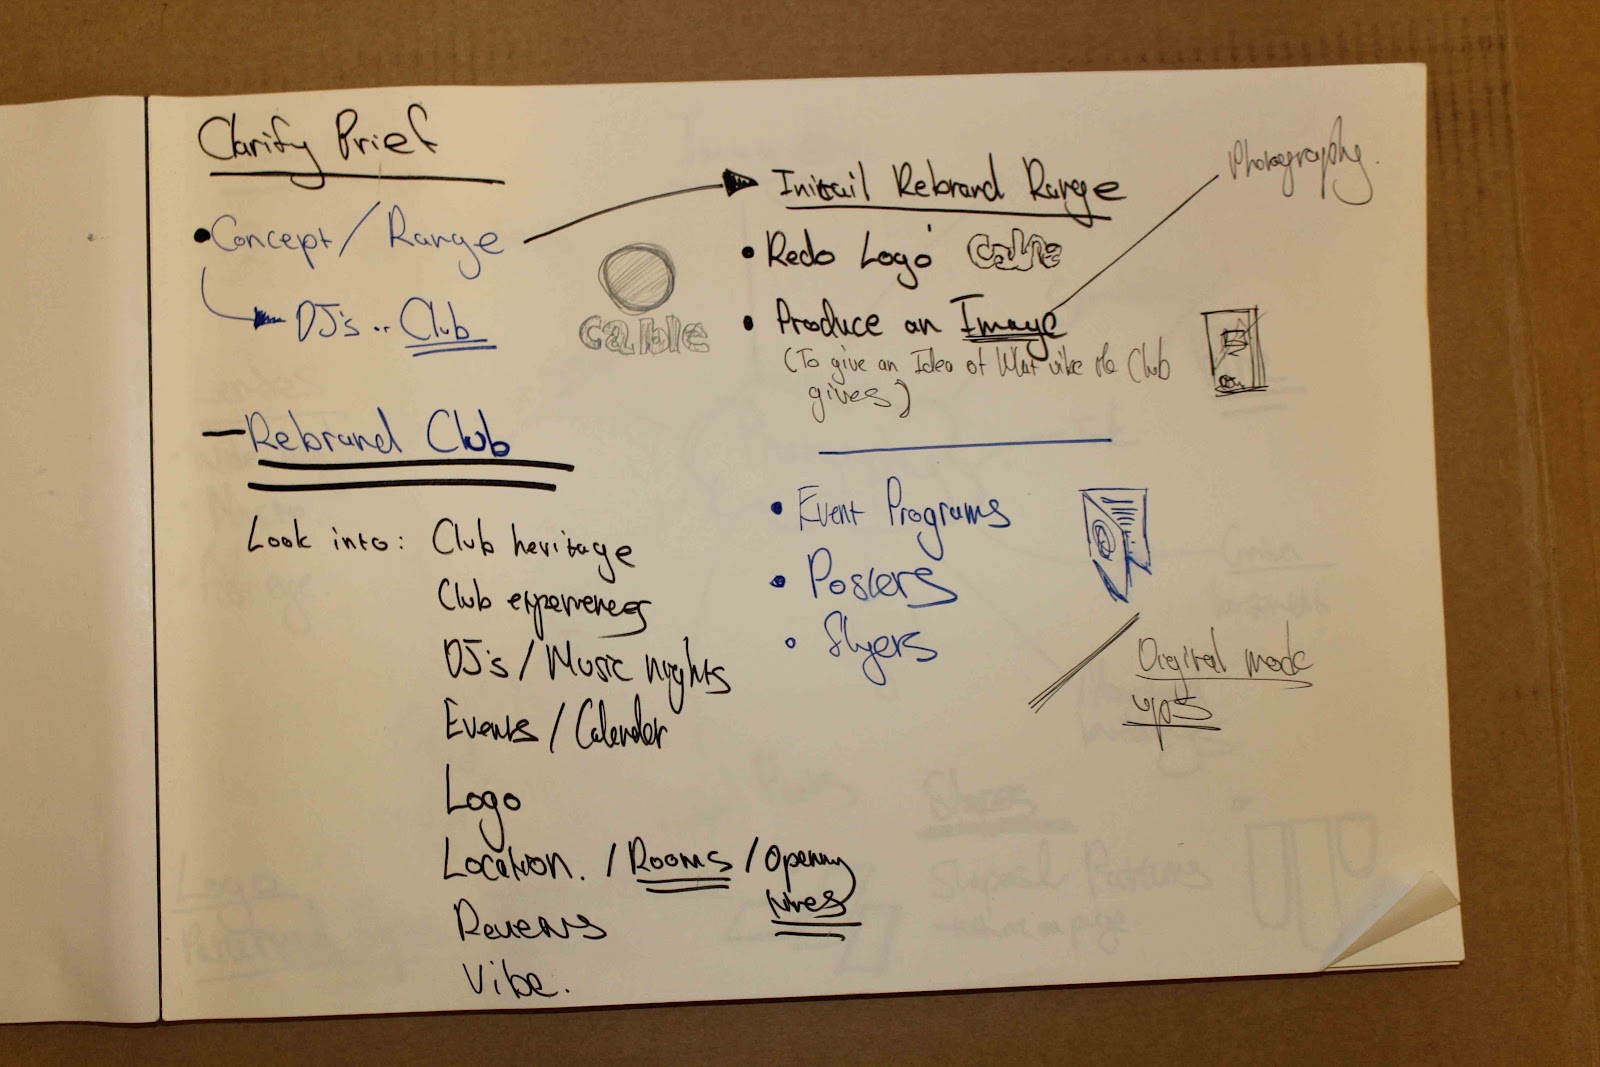 Clarify Brief
• Concept / Range
DJ's .. Club
— Rebrand Club
Look into: Club heritage
Club experiences
DJ's / Music nights
Events / Calender
Logo
Location. / Rooms / Opening
times
Reviews
Vibe.
cable
Initail Rebrand Range
• Redo Logo cable
• Produce an Image
(To give an Idea of What vibe the Club
gives)
Photography.
• Event Programs
• Posters
• Flyers
Digital mock
ups